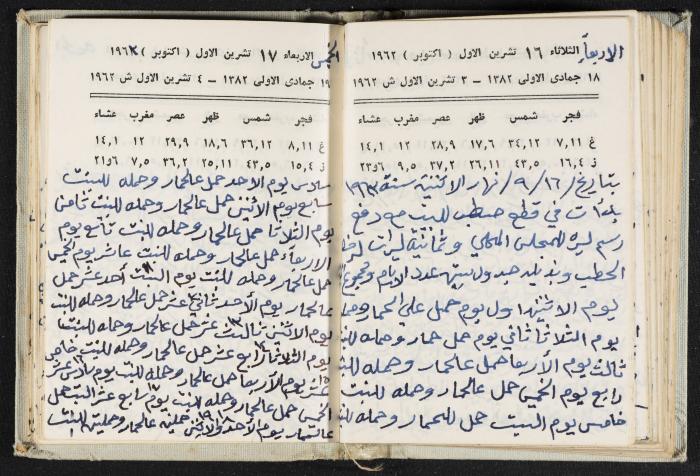 الاربعاء الثلاثاء ١٦ تشرين الاول ( اكتوبر ) ١٩٦٢
١٨ جمادى الاولى ١٣٨٢ – ٣ تشرين الاول ش ١٩٦٢
فجر شمس ظهر عصر مغرب عشاء
غ ٧,١١ ٣٤,١٢ ١٧,٦ ٢٨,٩ ١٢ ١٤,١
ز ١٦,٤ ٤٣,٥ ٢٦,١١ ٣٧,٢ ٩,٥ ٢٣و٦
بتاريخ /١٦/ ٩/ نهار الاثنين سنة ١٩٦٣
بدأت في قطع حطب للبيت مع دفع
رسم ليره للمجلس المحلي وثمانية ليرات
الحطب عدد الايام
يوم الاثنين اول يوم حمل على الحمار
يوم الثلاثا ثاني يوم حمل حمار وحمله
ثالث يوم الأربعا حمل عالحمار وحمله
رابع يوم الخميس حمل عالحمار وحمله للبيت
خامس يوم السبت حمل للحمار وحمله
الخميس الاربعاء ١٧ تشرين الاول ( اكتوبر ) ١٩٦٣
١٩ جمادى الاولى ١٣٨٢ – ٤ تشرين الاول ش ١٩٦٢
فجر شمس ظهر عصر مغرب عشاء
غ ٨,١١ ٣٦,١٢ ١٨,٦ ٢٩,٩ ١٢ ١٤,١
ز ١٥,٤ ٤٣,٥ ٢٥,١١ ٣٦,٢ ٧,٥ ٢١و٦
سادس يوم الاحد حمل عالحمار وحمله للبيت
سابع يوم الأثنين حمل عالحمار وحمله للبيت ثامن
يوم الثلاثا حمل عالحمار وحمله للبيت تاسع يوم
الاربعاء حمل عالحمار وحمله للبيت عاشر يوم الخميس
حمل عالحمار وحمله للبيت يوم السبت أحد عشر حمل
عالحمار يوم الأحد ثاني عشر حمل عالحمار وحمله للبيت
يوم الاثنين ثالث عشر حمل عالحمار وحمله للبيت
يوم الثلاثا رابع عشر حمل عالحمار وحمله للبيت خامس
عشر يوم الأربعا حمل عالحمار وحمله للبيت يوم سادس عشر
الخميس حمل عالحمار وحمله للبيت يوم سابع عشر السبت حمل
عالحمار يوم الأحد والاثنين ١٨ ١٩ حملية عالحمار وحملية للبيت